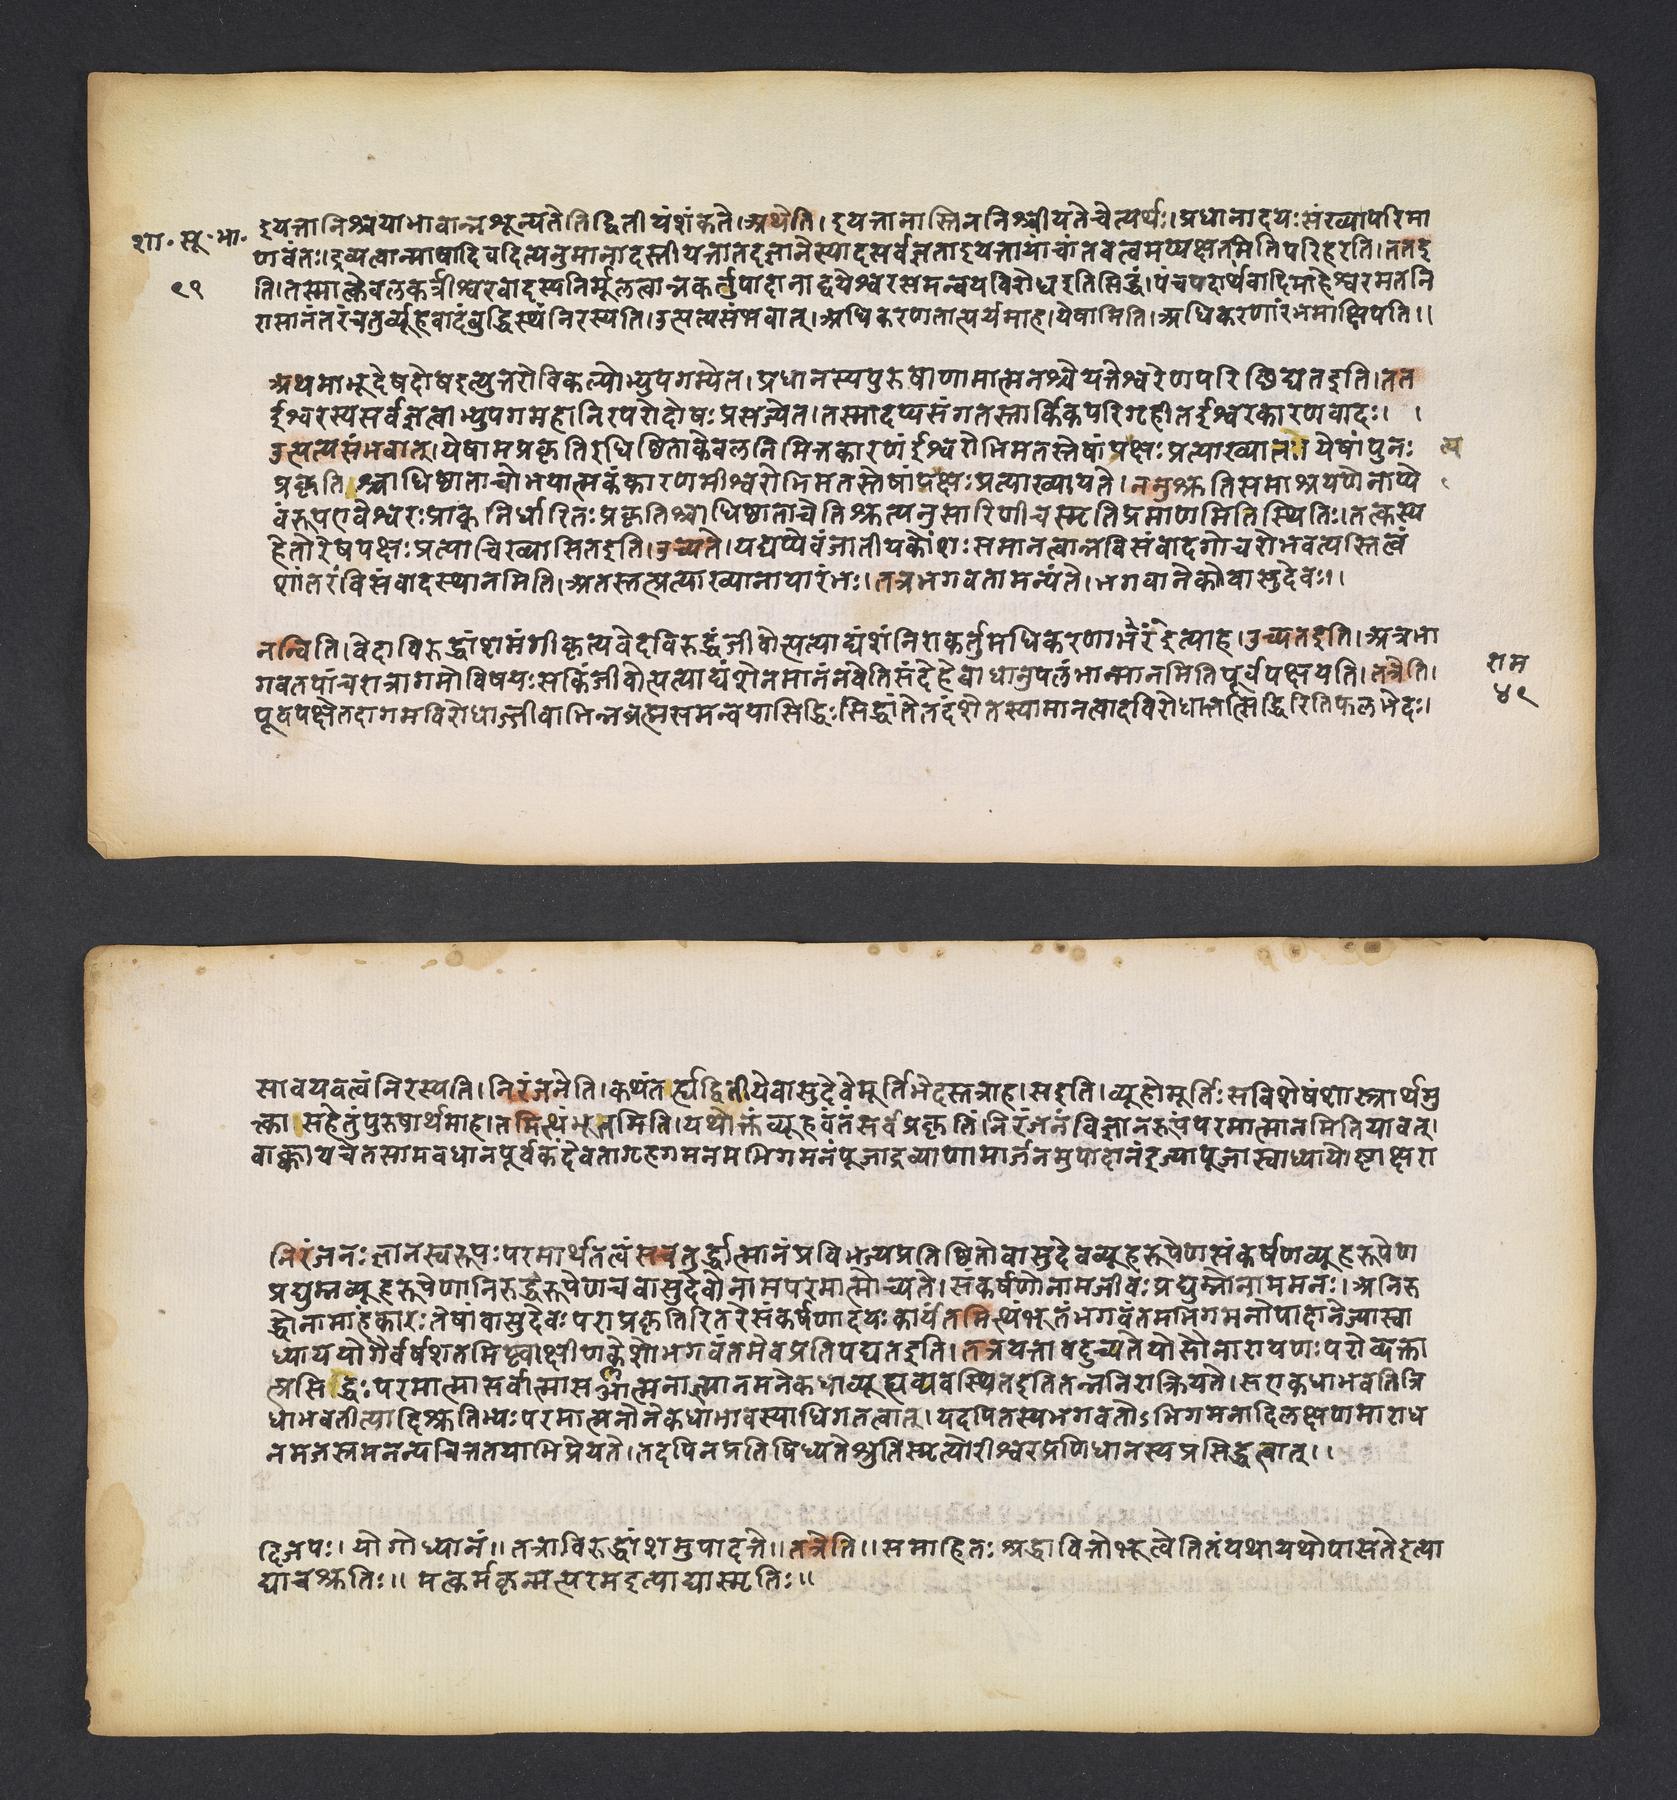 इयत्तानिश्चयाभावान्नशून्यतेतिद्वितीयंशंकते।अथेति।इयत्तानास्तिननिश्चीयतेचेत्यर्थः।प्रधानादयःसंख्यापरिमा
शा॰सू॰भा॰
णवंतः।द्रव्यत्वान्माषादिवदित्यनुमानादस्तीयत्तातदज्ञानेस्यादसर्वज्ञताइयत्तायांचांतवत्वमप्यक्षतमितिपरिहरति।ततइ
९९
ति।तस्मात्केवलकर्त्रीश्वरवादस्यनिर्मूलत्वान्नकर्तुपादानाद्वयेश्वरसमन्वयविरोधइतिसिद्धं।पंचपदार्थवादिमाहेश्वरमतनि
रासानंतरंचतुर्व्यूहवादंबुद्धिस्थंनिरस्यति।उत्पत्यसंभवात्।अधिकरणतात्पर्यमाह।येषामिति।अधिकरणारंभमाक्षिपति॥
अथमाभूदेषदोषइत्युत्तरोविकल्पोभ्युपगम्येत।प्रधानस्यपुरुषाणामात्मनश्चेयत्तेश्वरेणपरिछिद्यतइति।तत
ईश्वरस्यसर्वज्ञत्वाभ्युपगमहानिरपरोदोषःप्रसज्येत।तस्मादप्यसंगतस्तार्किकपरिगृहीतईश्वरकारणवादः।।
उत्पत्यसंभवात्।येषामप्रकृतिरधिष्ठिताकेवलनिमित्तकारणंईश्वरोभिमतस्तेषांपक्षःप्रत्याख्यातः।येषांपुनः
त्य
प्रकृतिश्चाधिष्ठाताचोभयात्मकंकारणमीश्वरोभिमतस्तेषांपक्षःप्रत्याख्यायते।ननुश्रुतिसमाश्रयणेनाप्ये
वंरूपएवेश्वरःप्राक्निर्धारितःप्रकृतिश्चाधिष्ठाताचेतिश्रुत्यनुसारिणीचस्मृतिप्रमाणमितिस्थितिः।तत्कस्य
हेतोरेषपक्षःप्रत्याचिख्यासितइति।उच्यते।यद्यप्येवंजातीयकोंशःसमानत्वान्नविसंवादगोचरोभवत्यस्तित्वं
शांतरंविसंवादस्थानमिति।अतस्तत्प्रत्याख्यानायारंभः।तत्रभगवतामन्यंते।भगवानेकोवासुदेवः।।
नन्विति।वेदाविरुद्धांशमंगीकृत्यवेदविरुद्धंजीवोत्पत्त्याद्यंशंनिराकर्तुमधिकरणारंभइत्याह।उच्यतइति।अत्रभा
गवतपांचरात्रागमोविषयःसकिंजीवोत्पत्याद्यंशेनमानंनवेतिसंदेहेबाधानुपलंभान्मानमितिपूर्वपक्षयति।तत्रेति।
राम
४९
पूवपक्षेतदागमविरोधाज्जीवाभिन्नब्रह्मसमन्वयासिद्धिःसिद्धांतेतदंशेतस्यामानत्वादविरोधात्तत्सिद्धिरितिफलभेदः।
सावयवत्वंनिरस्यति।निरंजनेति।कथंतर्ह्यद्वितीयेवासुदेवेमूर्तिभेदस्तत्राह।सइति।व्यूहोमूर्तिःसविशेषंशास्त्रार्थमु
क्त्वा।सहेतुंपुरुषार्थमाह।तमित्थंभूतमिति।यथोक्तंव्यूहवंतंसर्वप्रकृतिंनिरंजनंविज्ञानरूपंपरमात्मानमितियावत्।
वाक्कायचेतसामवधानपूर्वकंदेवतागृहगमनमभिगमनंपूजाद्रव्याणामार्जनमुपादानंइज्यापूजास्वाध्यायोष्टाक्षरा
निरंजनःज्ञानस्वरूपःपरमार्थतत्वंसचतुर्द्धात्मानंप्रविभज्यप्रतिष्ठितोवासुदेवव्यूहरूपेणसंकर्षणव्यूहरूपेण
प्रद्युम्नव्यूहरूपेणानिरुद्धरूपेणचवासुदेवोनामपरमात्मोच्यते।संकर्षणोनामजीवःप्रद्युम्नोनाममनः।अनिरु
द्धोनामाहंकारःतेषांवासुदेवःपराप्रकृतिरितरेसंकर्षणादयःकार्यंतमित्थंभूतंभगवंतमभिगमनोपादानेज्यास्वा
ध्याययोगैर्वर्षशतमिष्ट्वाक्षीणक्लेशोभगवंतमेवप्रतिपद्यतइति।तत्रयत्तावदुच्यतेयोसौनारायणःपरोव्यक्ता
त्प्रसिद्धःपरमात्मासर्वात्मासआत्मनात्मानमनेकधाव्यूह्यव्यवस्थितइतितन्ननिराक्रियते।सएकधाभवतित्रि
धाभवतीत्यादिश्रुतिभ्यःपरमात्मनोनेकधाभावस्याधिगतत्वात्।यदपितस्यभगवतोऽभिगमनादिलक्षणमाराध
नमजस्रमनन्यचित्ततयाभिप्रेयते।तदपिनप्रतिषिध्यतेश्रुतिस्मृत्योरीश्वरप्रणिधानस्यप्रसिद्धत्वात्।।
दिजपः।योगोध्यानं॥तत्राविरुद्धांशमुपादत्ते॥तत्रेति॥समाहितःश्रद्धावित्तोभूत्वेतितंयथायथोपासतेइत्या
द्याचश्रुतिः॥मत्कर्मकृन्मत्परमइत्याद्यास्मृतिः॥